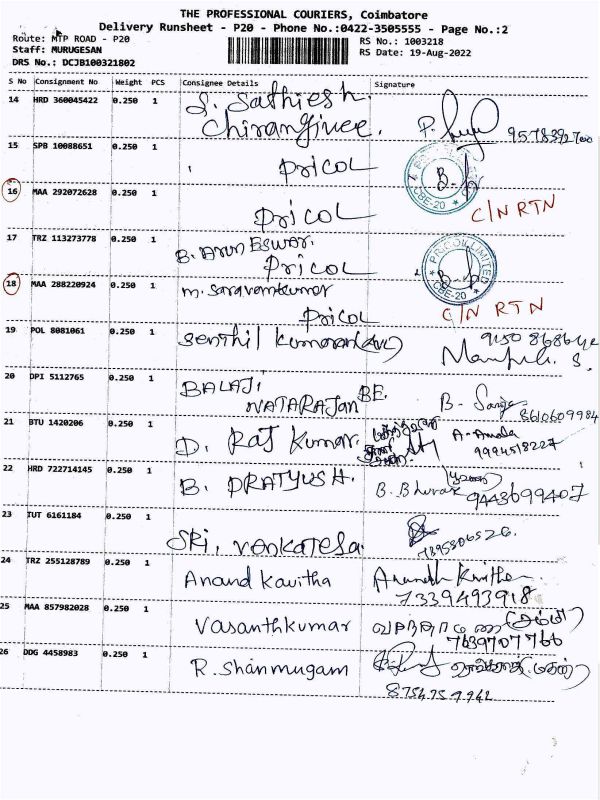 THE PROFESSIONAL COURIERS, Coimbatore
Delivery Runsheet - P20 - Phone No.:0422-3505555 - Page No.:2
Route: MTP ROAD - P20
RS No.: 1003218
Staff: MURUGESAN
RS Date: 19-Aug-2022
DRS No.: DCJB100321802
S No Consignment No Weight PCS Consignee Details Signature
14 HRD 360045422 0.250 1 S. Sathiesh
Chiranjivee.
15 SPB 10088651 0.250 1 PRICOL
16 MAA 292072628 0.250 1 PRICOL C/N RTN
17 TRZ 113273778 0.250 1 B. Arun Eswar.
PRICOL
PRICOL LIMITED
CBE-20
18 MAA 288220924 0.250 1 M. Saravanakumar
PRICOL C/N RTN
19 POL 8081061 0.250 1 Senthil Kumaran
20 DPI 5112765 0.250 1 BALAJI
NATARAJAN BE. 8610609984
21 BTU 1420206 0.250 1 D. Raj Kumar. A-Amala
9994518227
22 HRD 722714145 0.250 1 B. PRATYUSH. 9443699407
23 TUT 6161184 0.250 1 SRI. Venkatesa.
24 TRZ 255128789 0.250 1 Anand Kavitha
7339493918
25 MAA 857982028 0.250 1 Vasanthkumar (அம்மா)
7639707766
26 DDG 4458983 0.250 1 R. Shanmugam (மகன்)